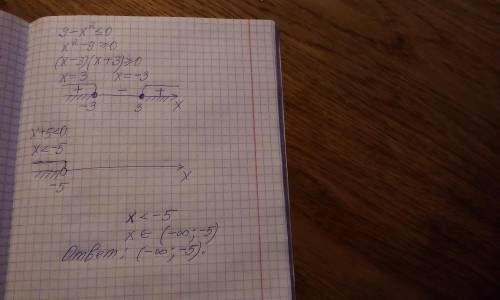 9-x²≤0
x²-9≥0
(x-3)(x+3)≥0
x=3 x=-3
+ - +
-3 3 x
x+5<0
x<-5
-5 x
x<-5
x∈(-∞;-5)
Ответ: (-∞;-5).